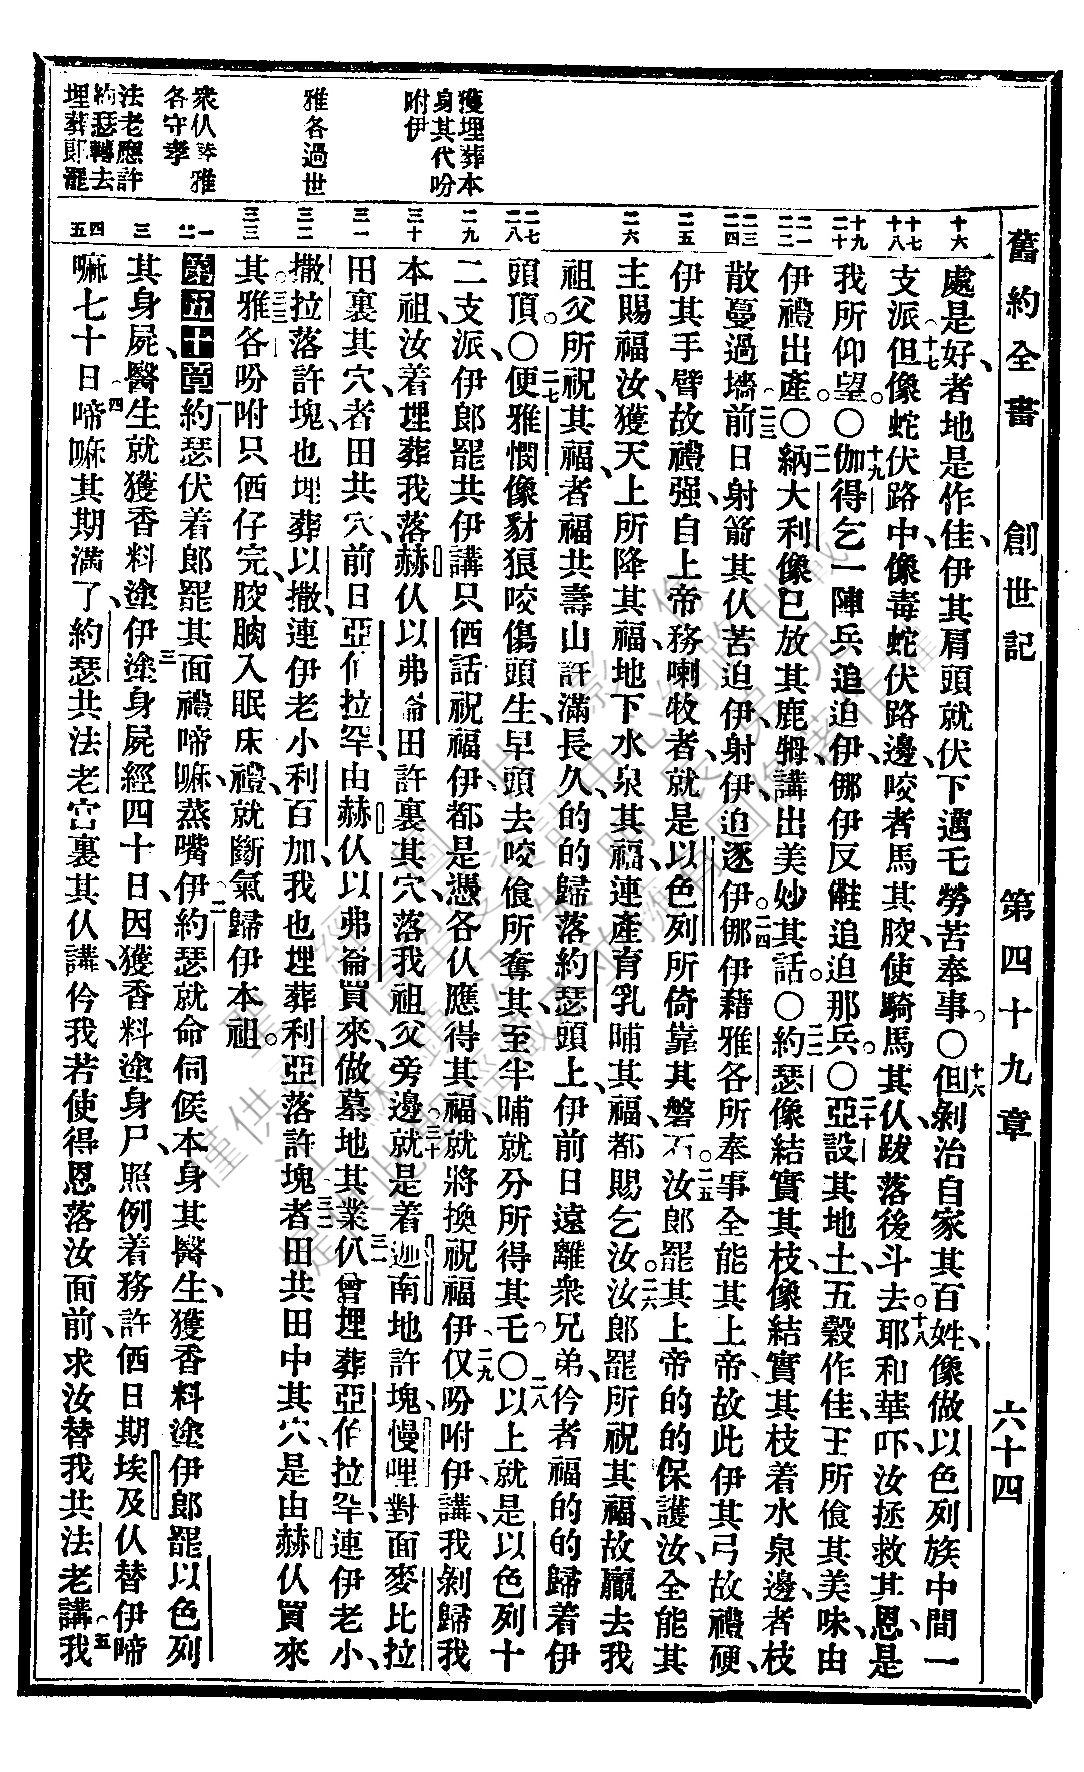 舊約全書　創世記　第四十九章　六十四
處是好、者地是作佳、伊其肩頭就伏下邁乇勞苦奉事。〇十六但剝治自家其百姓、像做以色列族中間一
支派。十七但像蛇伏路中、像毒蛇伏路邊、咬者馬其骹、使騎馬其仈跋落後斗去。十八耶和華吓、汝拯救其恩、是
我所仰望。〇十九伽得乞一陣兵追迫伊、㑚伊反䩺追迫那兵。〇二十亞設其地土、五穀作佳、王所飡其美味、由
伊禮出產。〇二一納大利像已放其鹿𤙩、講出美妙其話。〇二二約瑟像結實其枝、像結實其枝着水泉邊、者枝
散蔓過墻。二三前日射箭其仈苦迫伊、射伊、迫逐伊、二四㑚伊藉雅各所奉事全能其上帝、故此伊其弓故禮硬、
伊其手臂故禮强、自上帝務喇牧者、就是以色列所倚靠其磐石。二五汝郎罷其上帝的的保護汝、全能其
主賜福汝、獲天上所降其福、地下水泉其福、連產育乳哺其福、都賜乞汝。二六汝郎罷所祝其福、故贏去我
祖父所祝其福、者福共壽山許滿長久、的的歸落約瑟頭上、伊前日遠離衆兄弟、仱者福的的歸着伊
頭頂。〇二七便雅憫像豺狼咬傷頭生、早頭去咬飡所奪其、至半晡就分所得其乇。〇二八以上就是以色列十
二支派、伊郎罷共伊講只𠍆話祝福伊、都是憑各仈應得其福、就將換祝福伊。二九仅吩咐伊講、我剝歸我
本祖、汝着埋葬我落赫仈以弗崙田許裏其穴、落我祖父旁邊、三十就是着迦南地許塊、慢哩對面麥比拉
田裏其穴、者田共穴、前日亞伯拉罕、由赫仈以弗崙買來、做墓地其業。三一仈曾埋葬亞伯拉罕、連伊老小、
撒拉落許塊、也埋葬以撒、連伊老小利百加、我也埋葬利亞落許塊、三二者田共田中其穴、是由赫仈買來
其。三三雅各吩咐只𠍆仔完、骹朒入眠床禮、就斷氣歸伊本祖。
第五十章　一約瑟伏着郎罷其面禮啼嘛、蒸嘴伊。二約瑟就命伺候本身其醫生、獲香料塗伊郎罷以色列
其身屍、醫生就獲香料塗伊、三塗身屍經四十日、因獲香料塗身尸、照例着務許𠍆日期、埃及仈替伊啼
嘛七十日。四啼嘛其期滿了、約瑟共法老宮裏其仈講、仱我若使得恩落汝面前、求汝替我共法老講、五我
十六
十七
十八
十九
二十
二一
二二
二三
二四
二五
二六
二七
二八
二九
三十
三一
三二
三三
一
二
三
四
五
獲埋葬本身其代吩咐伊
雅各過世
衆仈替雅各守孝
法老應許約瑟轉去埋葬郎罷